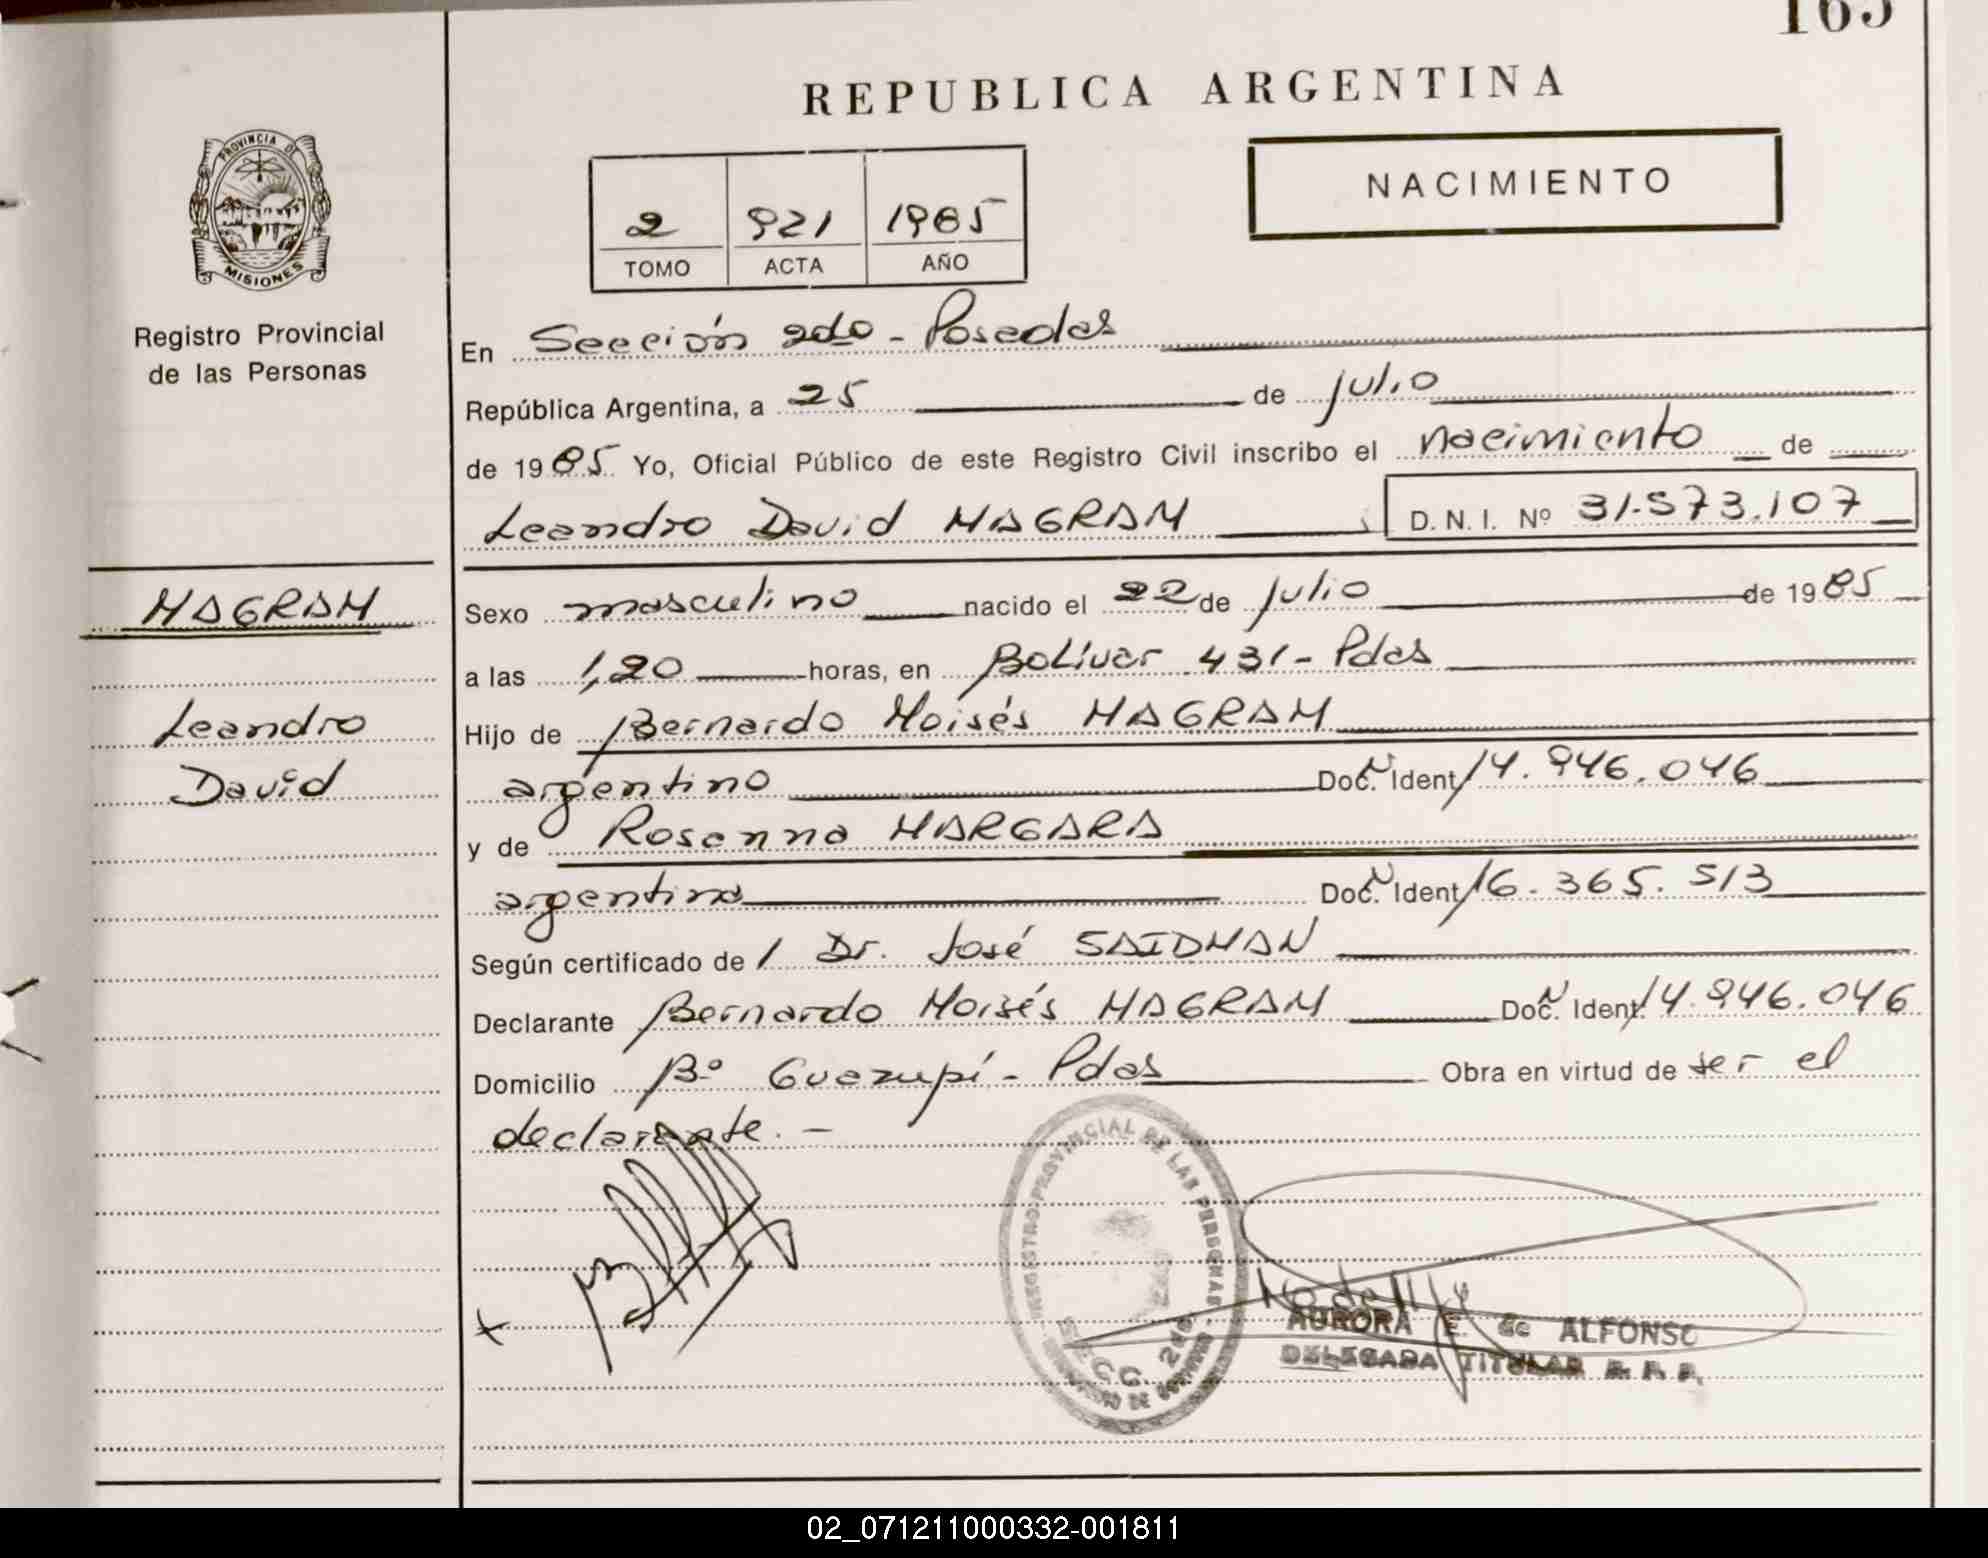 165
REPUBLICA ARGENTINA
PROVINCIA DE
MISIONES
Registro Provincial
de las Personas
2 921 1985
TOMO ACTA AÑO
NACIMIENTO
En Sección 2do - Posadas
República Argentina, a 25 de julio
de 1985 Yo, Oficial Público de este Registro Civil inscribo el nacimiento de
Leandro David MAGRAM D. N. I. Nº 31.573.107
MAGRAM
Leandro
David
Sexo masculino nacido el 22 de julio de 1985
a las 1,20 horas, en Bolívar 431 - Pdas
Hijo de Bernardo Moisés MAGRAM
argentino Doc. Ident 14.946.046
y de Rosanna MARGARA
argentina Doc. Ident 16.365.513
Según certificado de 1 Dr. José SAIDMAN
Declarante Bernardo Moisés MAGRAM Doc. Ident. 14.946.046
Domicilio Bº Guazupí - Pdas Obra en virtud de ser el
declarante. -
REGISTRO PROVINCIAL DE LAS PERSONAS
SECC. 2da
AURORA E. de ALFONSO
DELEGADA TITULAR R. P. P.
02_071211000332-001811